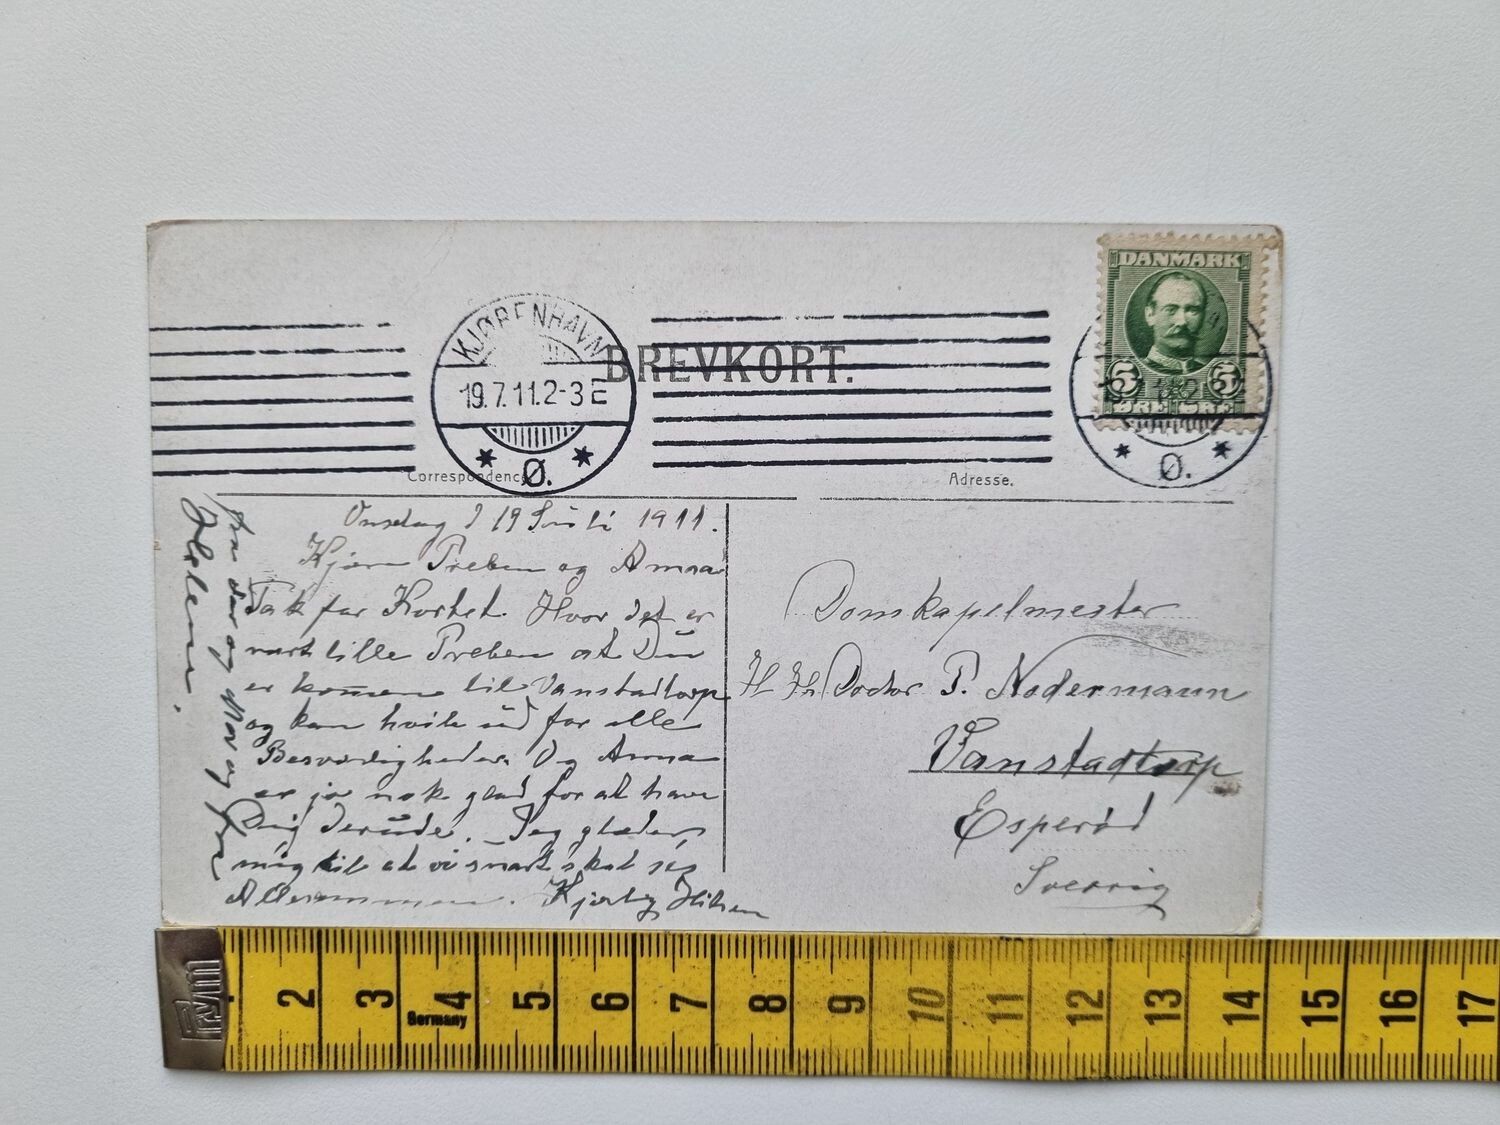 DANMARK
5 5
ØRE ØRE
KJØBENHAVN
19.7.11.2-3 E
Ø.
BREVKORT.
Ø.
Correspondence
Adresse.
Onsdag d 19 Juli 1911.
Kjære Preben og Anna
Tak for Kortet. Hvor det er
rart lille Preben at Du
er kommen til Vanstadtorp
og kan hvile ud for alle
Besværligheder. Og Anna
er jo nok glad for at have
Dig derude. Jeg glæder
mig til at vi snart skal ses
Allesammen. Kjærlig Hilsen
fra og og
Helene.
Domkapelmester
H Hr. Doctor P. Nodermann
Vanstadtorp
Esperöd
Sverrig
Rym
Germany
2 3 4 5 6 7 8 9 10 11 12 13 14 15 16 17